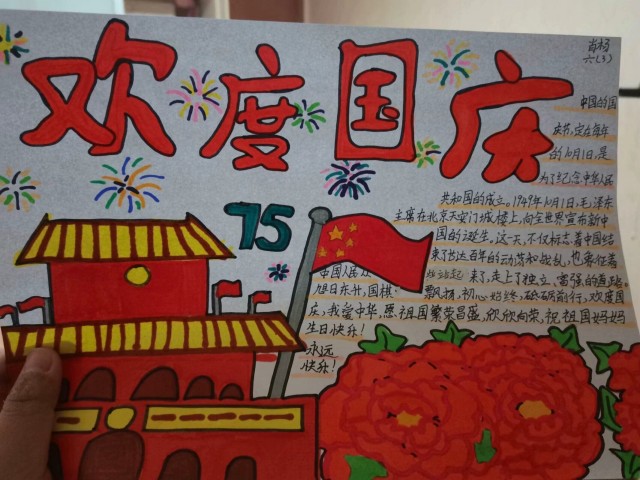 欢度国庆
肖杨
六(3)
75
中国的国
庆节,定在每年
的10月1日,是
为了纪念中华人民
共和国的成立。1949年10月1日,毛泽东
主席在北京天安门城楼上,向全世界宣布新中
国的诞生。这一天,不仅标志着中国结
束了长达百年的动荡和战乱,也意味着
中国人民从 始站起 来了,走上了独立、富强的道路。
旭日东升,国棋 飘扬,初心始终,砥砺前行,欢度国
庆,我爱中华,愿祖国繁荣昌盛,欣欣向荣,祝祖国妈妈
生日快乐!
永远
快乐!